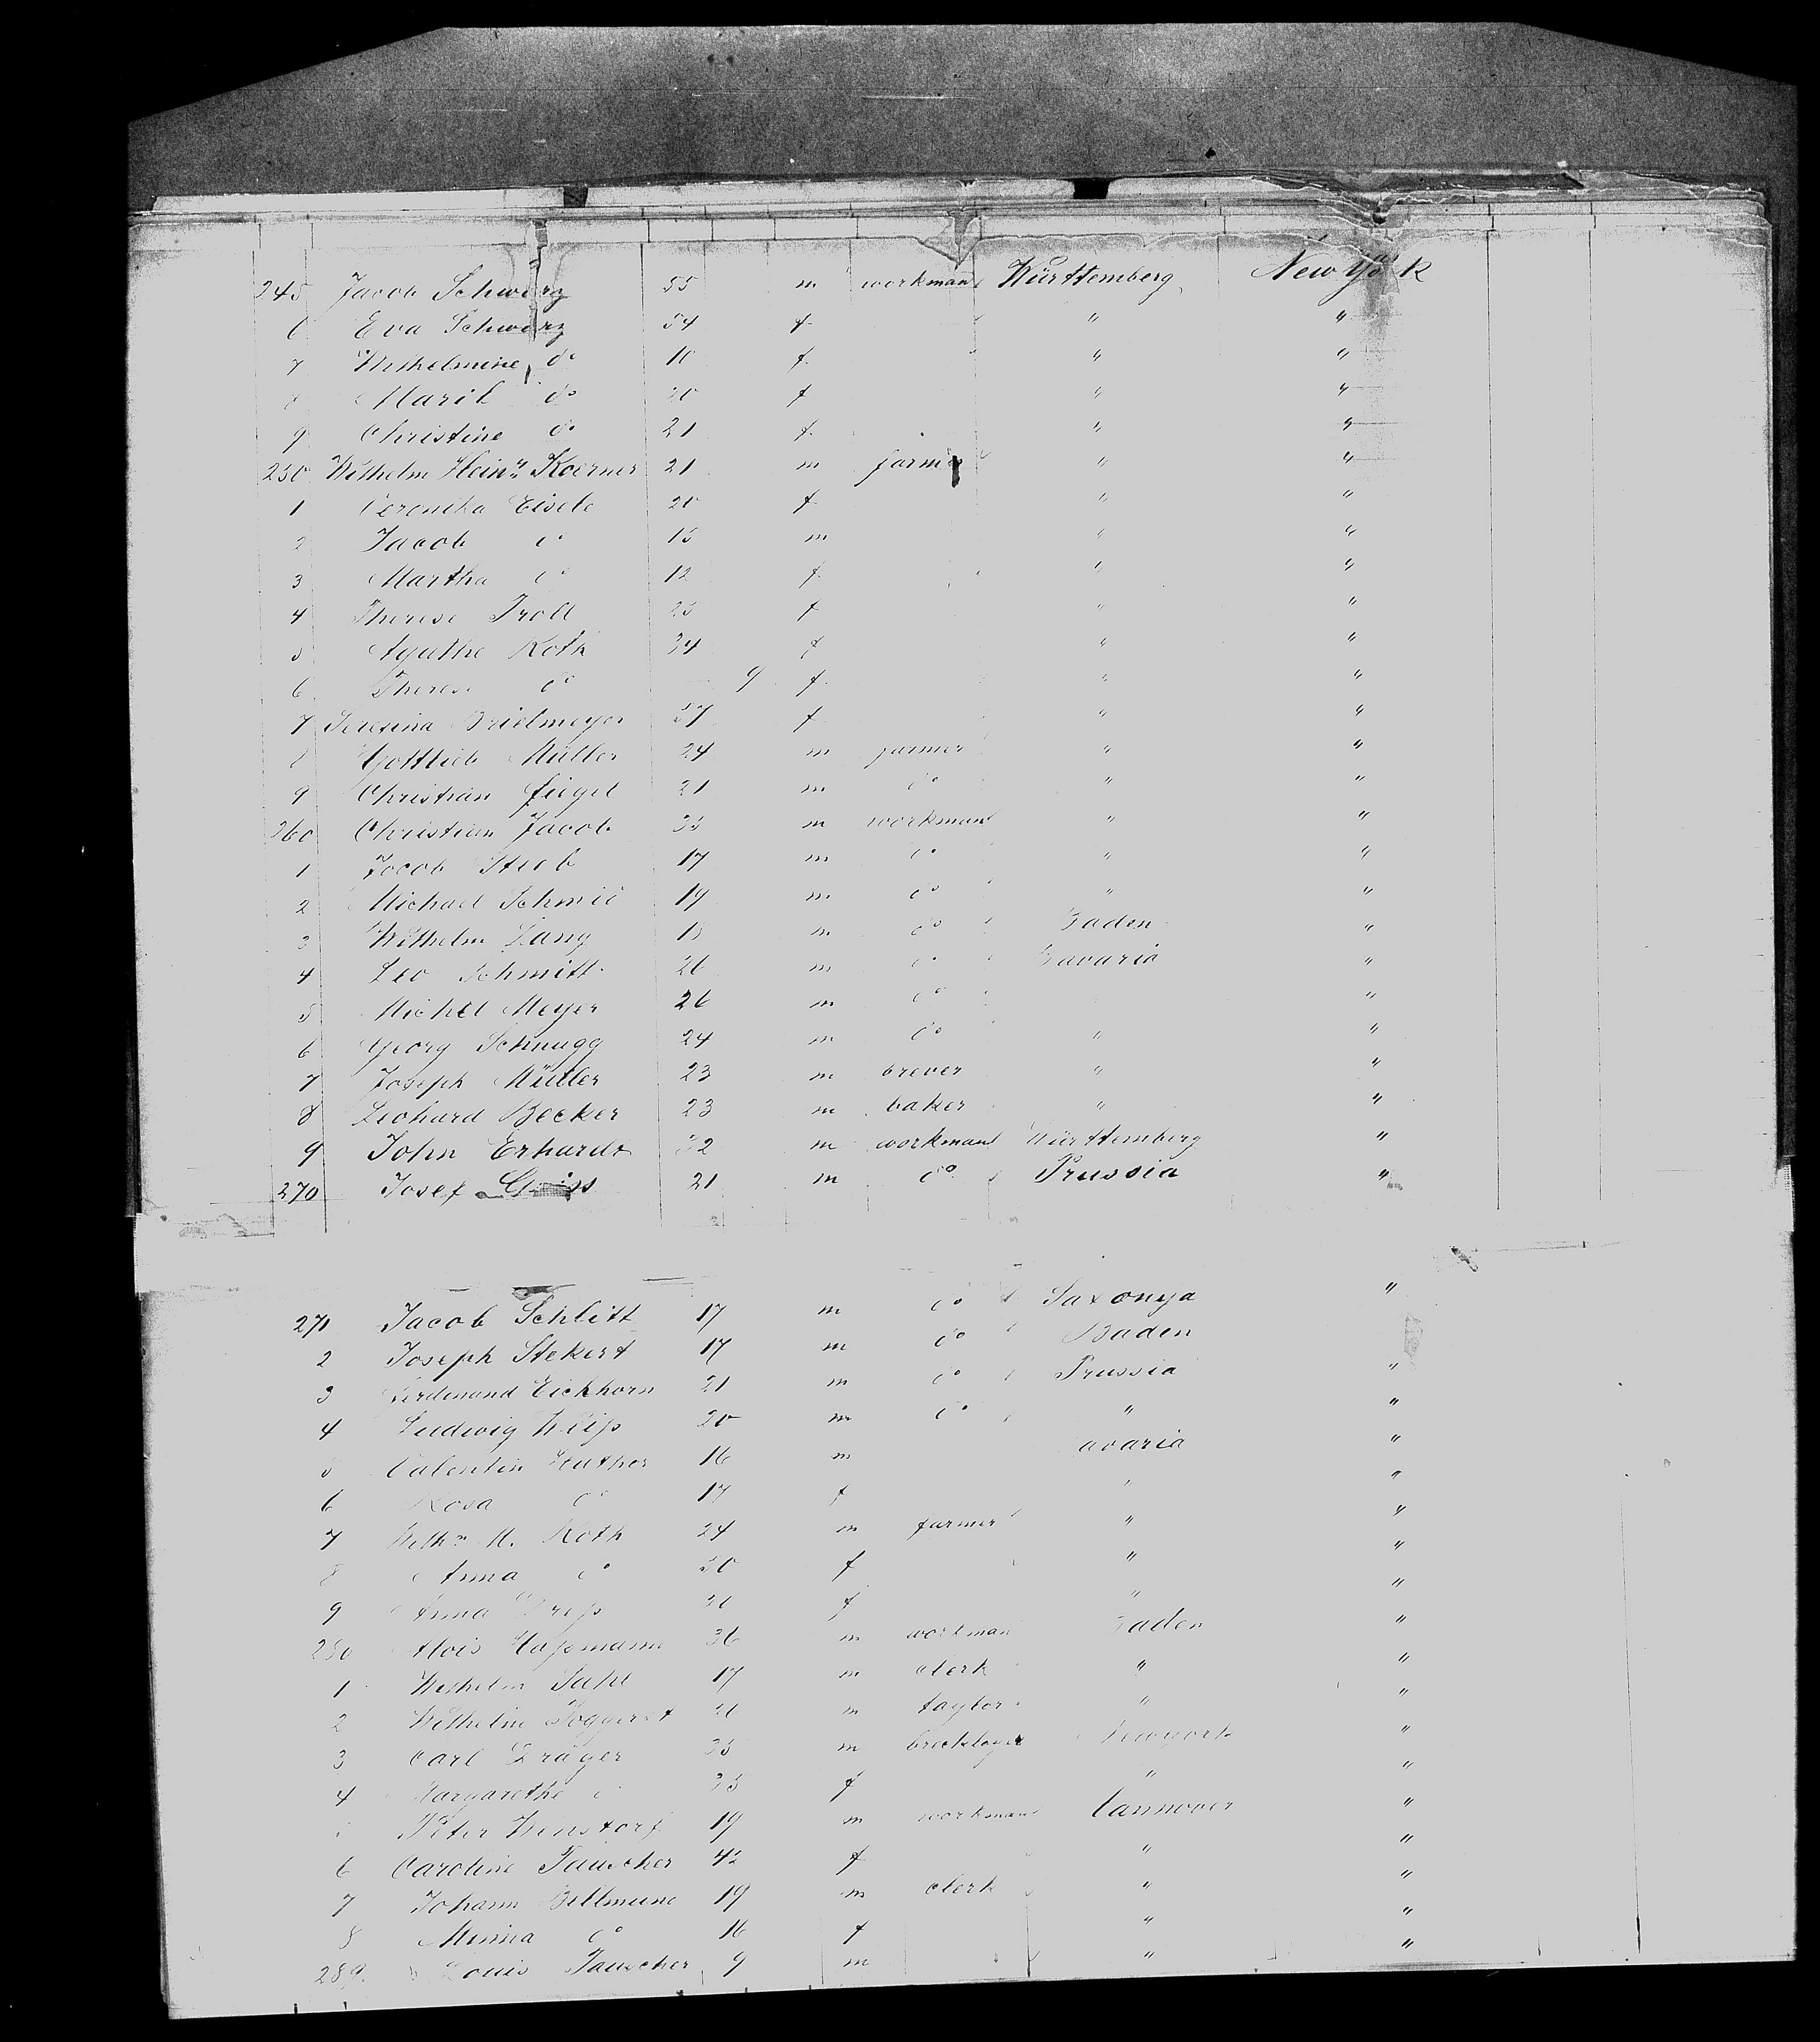 245 Jacob Schwarz 55 m workman Württemberg New York
6 Eva Schwarz 54 f " "
7 Wilhelmine do 16 f " "
8 Marie do 20 f " "
9 Christine do 21 f " "
250 Wilhelm Heinr. Koerner 21 m farmer " "
1 Veronika Eisele 20 f " "
2 Jacob do 15 m " "
3 Martha do 12 f " "
4 Therese Troll 25 f " "
5 Agathe Roth 34 f " "
6 Therese do 9 f " "
7 Brielmeyer 37 f " "
8 Gottlieb Müller 24 m farmer " "
9 Christian 21 m do " "
260 Christian Jacob 35 m workman " "
1 Jacob Steeb 17 m do " "
2 Michael Schmid 19 m do " "
3 Wilhelm Lang 18 m do Baden "
4 Leo Schmitt 26 m do Bavaria "
5 Michel Meyer 26 m do "
6 Georg Schnugg 24 m do " "
7 Joseph Müller 23 m brever " "
8 Lichard Becker 23 m baker " "
9 John Erhardt 32 m workman Württemberg "
270 Josef 21 m do Prussia "
271 Jacob Schlitt 17 m do Saxonya "
2 Joseph Stekert 17 m do Baden
3 Ferdinand Eickhorn 21 m do Prussia "
4 Ludwig 20 m do " "
5 Valentin 16 m avaria "
6 Rosa do 17 f " "
7 Wilhm M. Roth 24 m farmer " "
8 Anna do 30 f " "
9 Anna 21 f " "
280 Alois Hassmann 36 m workman Baden "
1 Wilhelm 17 m clerk " "
2 Wilhelm m taylor " "
3 Carl Dräger 35 m brecklayer Newyork "
4 Margarethe do 35 f " "
Peter 19 m workman Hannover "
6 Caroline Tauscher 42 f " "
7 Johann 19 m clerk " "
8 Minna do 16 f " "
289. Louis Tauscher 9 m " "